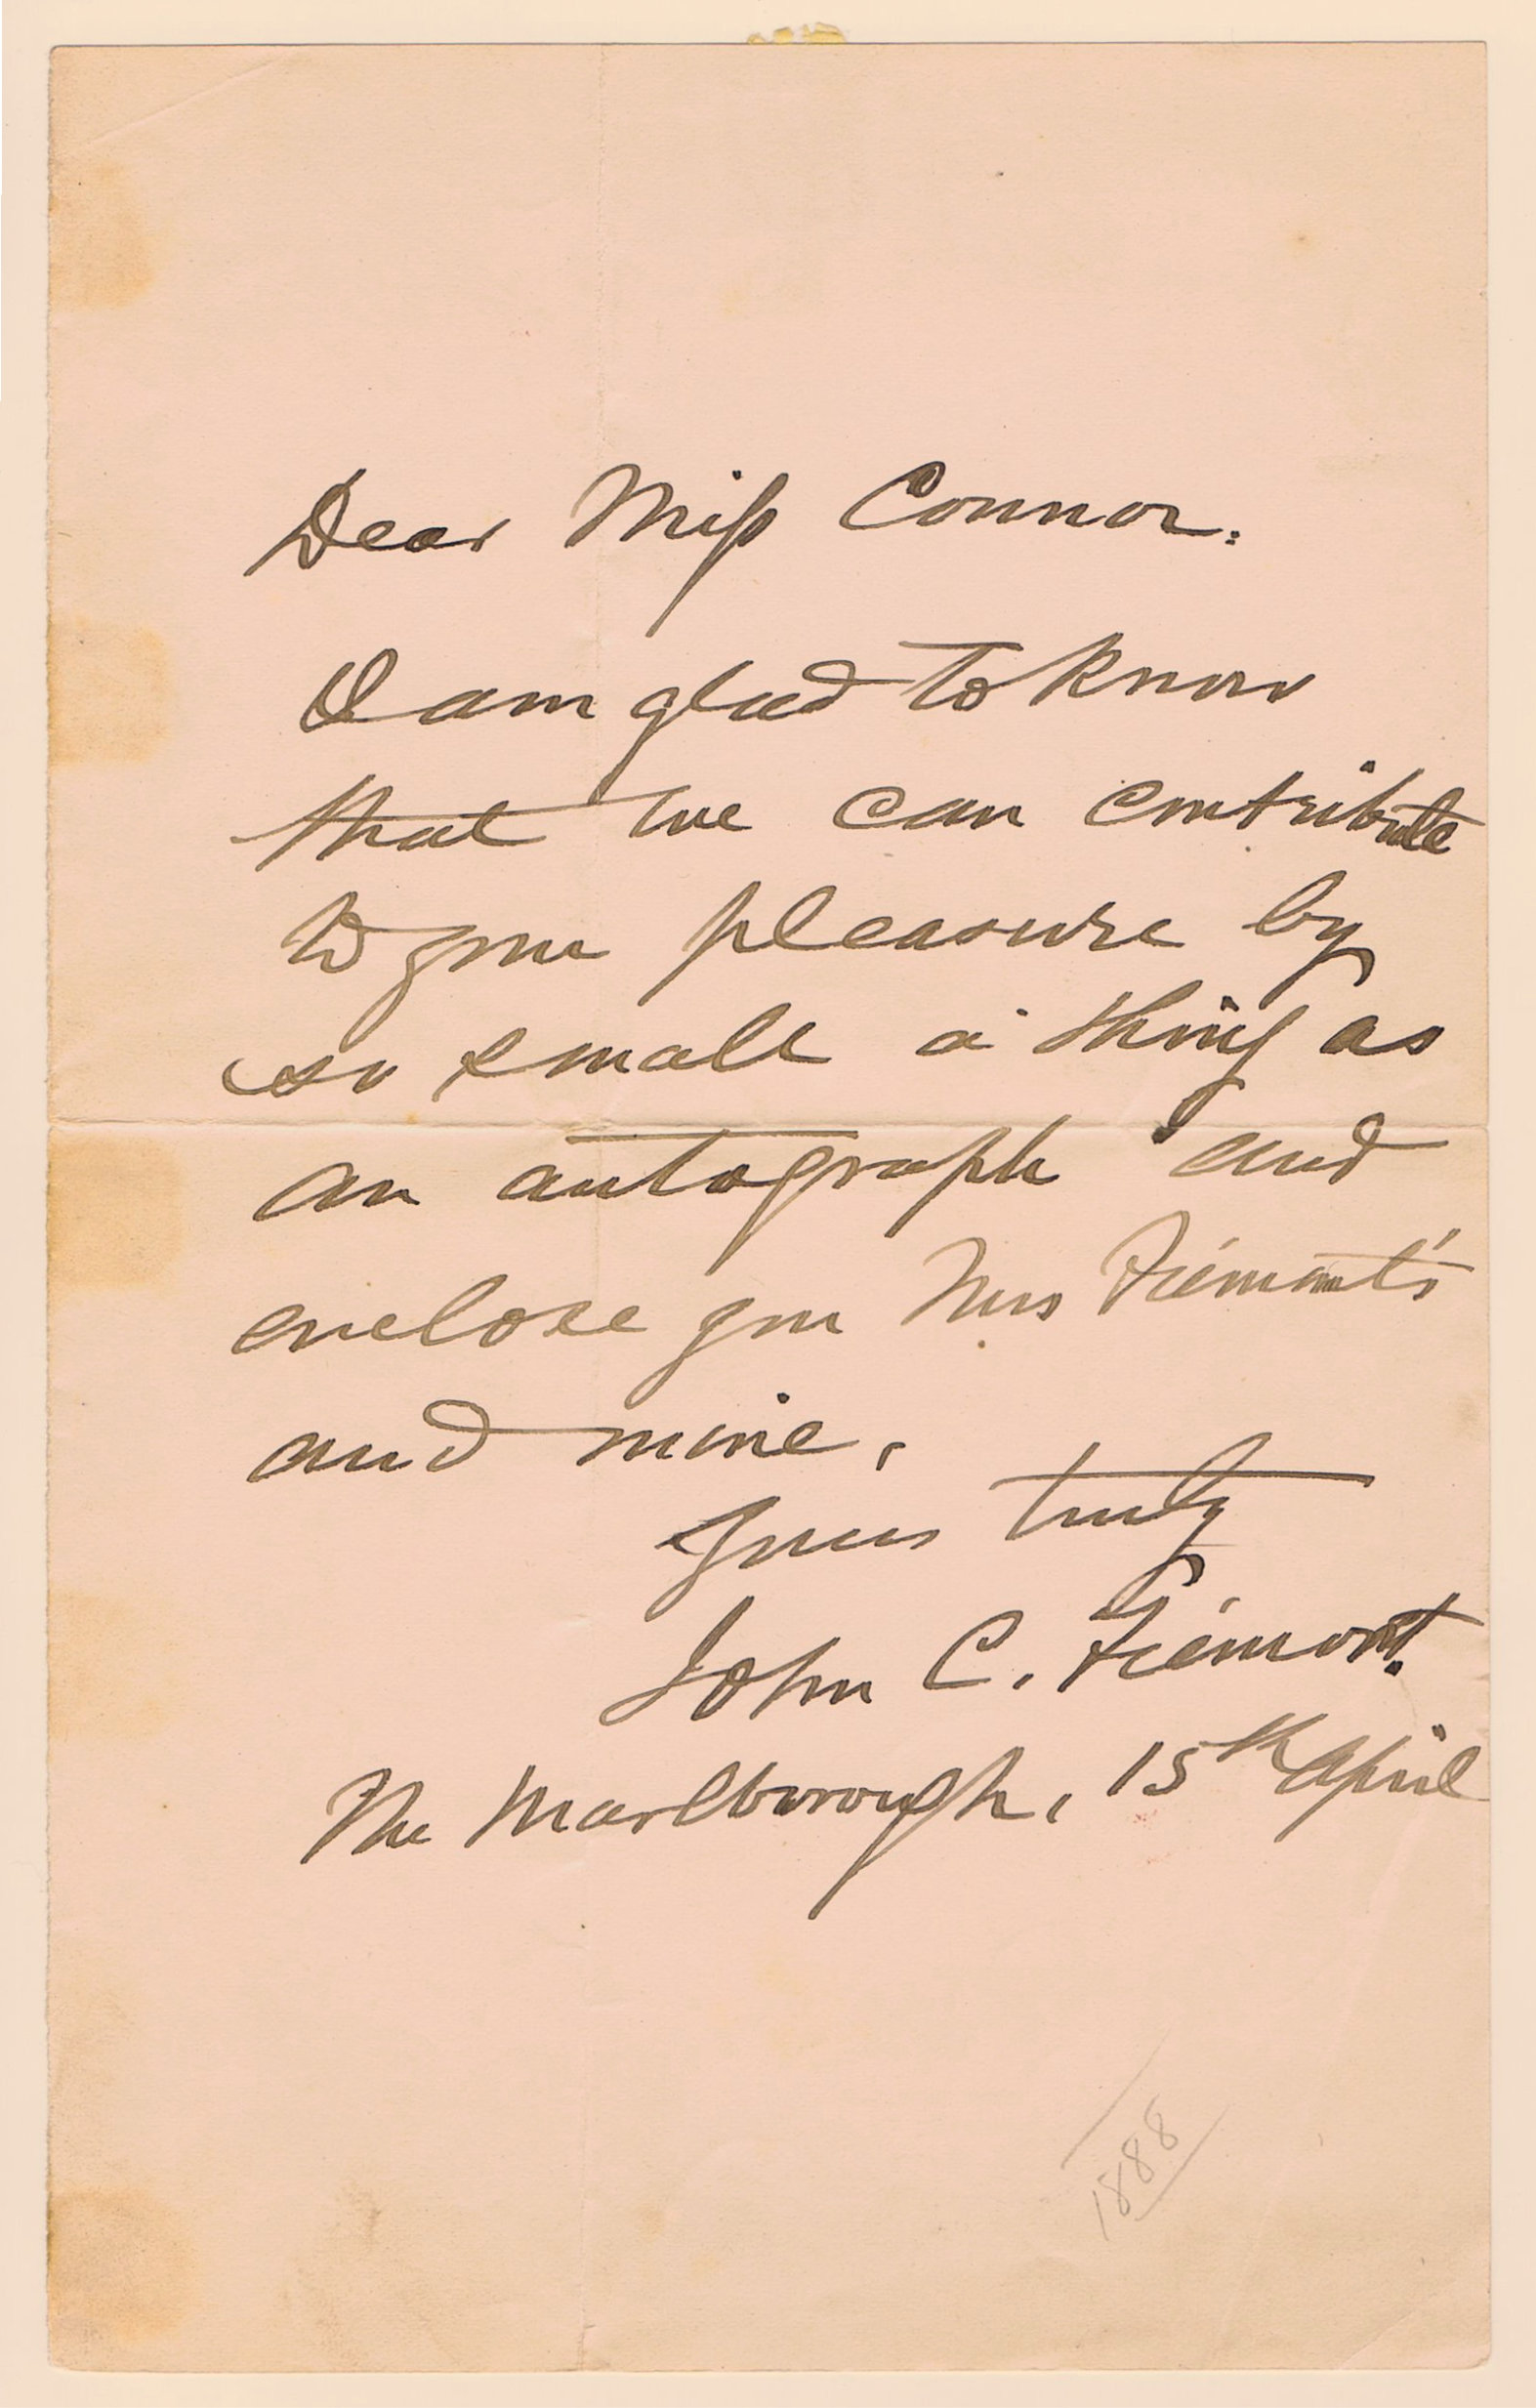 Dear Miss Connor:
I am glad to know
that we can contribute
to your pleasure by
so small a thing as
an autograph and
enclose you Mrs Frémont's
and mine.
Yours truly
John C. Frémont.
The Marlborough, 15th April
1888